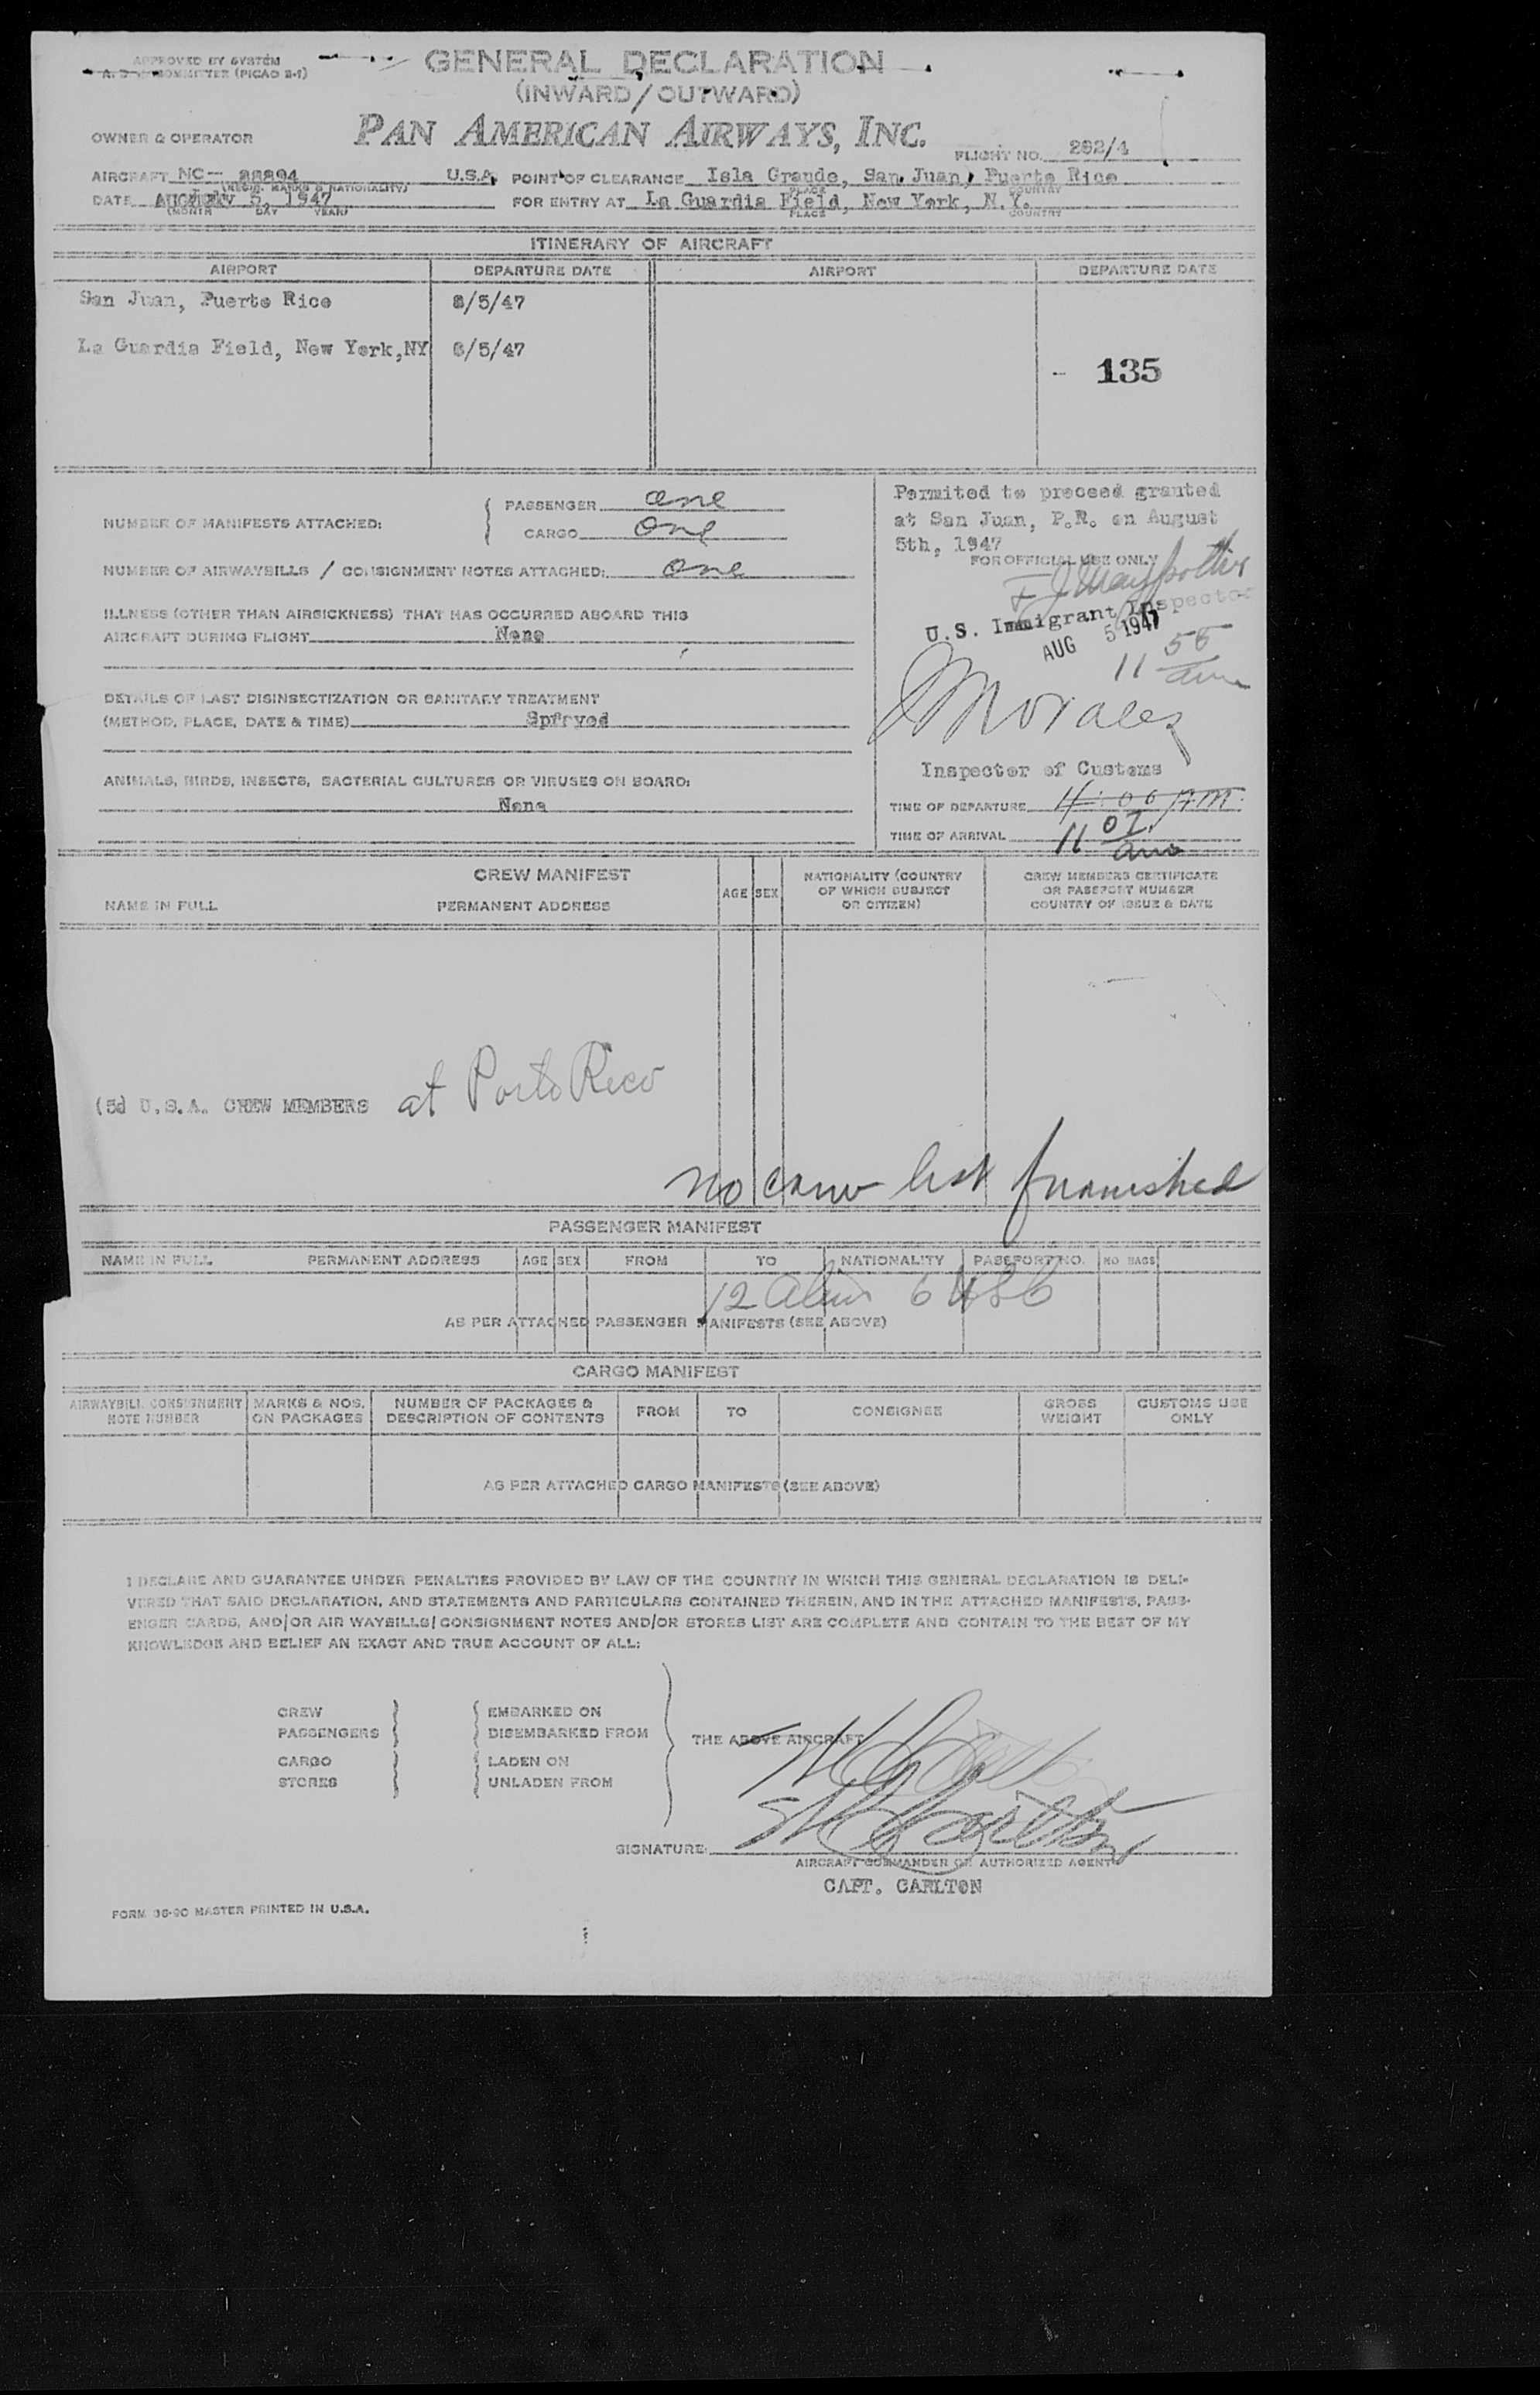 APPROVED BY SYSTEM
COMMITTEE (PICAO S-1)
GENERAL DECLARATION
(INWARD / OUTWARD)
OWNER & OPERATOR PAN AMERICAN AIRWAYS, INC.
FLIGHT NO. 282/4
AIRCRAFT NC- 88894 U.S.A. POINT OF CLEARANCE Isla Grande, San Juan, Puerto Rico
(REGIS. MARKS & NATIONALITY) PLACE COUNTRY
DATE 5, 1947 FOR ENTRY AT La Guardia Field, New York, N.Y.
(MONTH DAY YEAR) PLACE COUNTRY
ITINERARY OF AIRCRAFT
AIRPORT DEPARTURE DATE AIRPORT DEPARTURE DATE
San Juan, Puerto Rico 8/5/47
La Guardia Field, New York,NY 8/5/47
- 135
NUMBER OF MANIFESTS ATTACHED: PASSENGER one
CARGO one
NUMBER OF AIRWAYBILLS / CONSIGNMENT NOTES ATTACHED: one
ILLNESS (OTHER THAN AIRSICKNESS) THAT HAS OCCURRED ABOARD THIS
AIRCRAFT DURING FLIGHT None
DETAILS OF LAST DISINSECTIZATION OR SANITARY TREATMENT
(METHOD, PLACE, DATE & TIME) Sprryed
ANIMALS, BIRDS, INSECTS, BACTERIAL CULTURES OR VIRUSES ON BOARD:
None
Permited to proceed granted
at San Juan, P.R. on August
5th, 1947
FOR OFFICIAL USE ONLY
U.S. Immigrant Inspector
AUG 5 1947
11 55 am
Morales
Inspector of Customs
TIME OF DEPARTURE 11:00 AM
TIME OF ARRIVAL 11 01 am
CREW MANIFEST
NAME IN FULL PERMANENT ADDRESS AGE SEX NATIONALITY (COUNTRY OF WHICH SUBJECT OR CITIZEN) CREW MEMBERS CERTIFICATE OR PASSPORT NUMBER COUNTRY OF ISSUE & DATE
(5) U.S.A. CREW MEMBERS at Porto Rico
no crew list furnished
PASSENGER MANIFEST
NAME IN FULL PERMANENT ADDRESS AGE SEX FROM TO NATIONALITY PASSPORT NO. NO BAGS
12 aliens 6 USC
AS PER ATTACHED PASSENGER MANIFESTS (SEE ABOVE)
CARGO MANIFEST
AIRWAYBILL CONSIGNMENT NOTE NUMBER MARKS & NOS. ON PACKAGES NUMBER OF PACKAGES & DESCRIPTION OF CONTENTS FROM TO CONSIGNEE GROSS WEIGHT CUSTOMS USE ONLY
AS PER ATTACHED CARGO MANIFESTS (SEE ABOVE)
I DECLARE AND GUARANTEE UNDER PENALTIES PROVIDED BY LAW OF THE COUNTRY IN WHICH THIS GENERAL DECLARATION IS DELI-
VERED THAT SAID DECLARATION, AND STATEMENTS AND PARTICULARS CONTAINED THEREIN, AND IN THE ATTACHED MANIFESTS, PASS-
ENGER CARDS, AND/OR AIR WAYBILLS/CONSIGNMENT NOTES AND/OR STORES LIST ARE COMPLETE AND CONTAIN TO THE BEST OF MY
KNOWLEDGE AND BELIEF AN EXACT AND TRUE ACCOUNT OF ALL:
CREW EMBARKED ON
PASSENGERS DISEMBARKED FROM THE ABOVE AIRCRAFT
CARGO LADEN ON
STORES UNLADEN FROM
SIGNATURE: Carlton
AIRCRAFT COMMANDER OR AUTHORIZED AGENT
CAPT. CARLTON
FORM 36-9C MASTER PRINTED IN U.S.A.